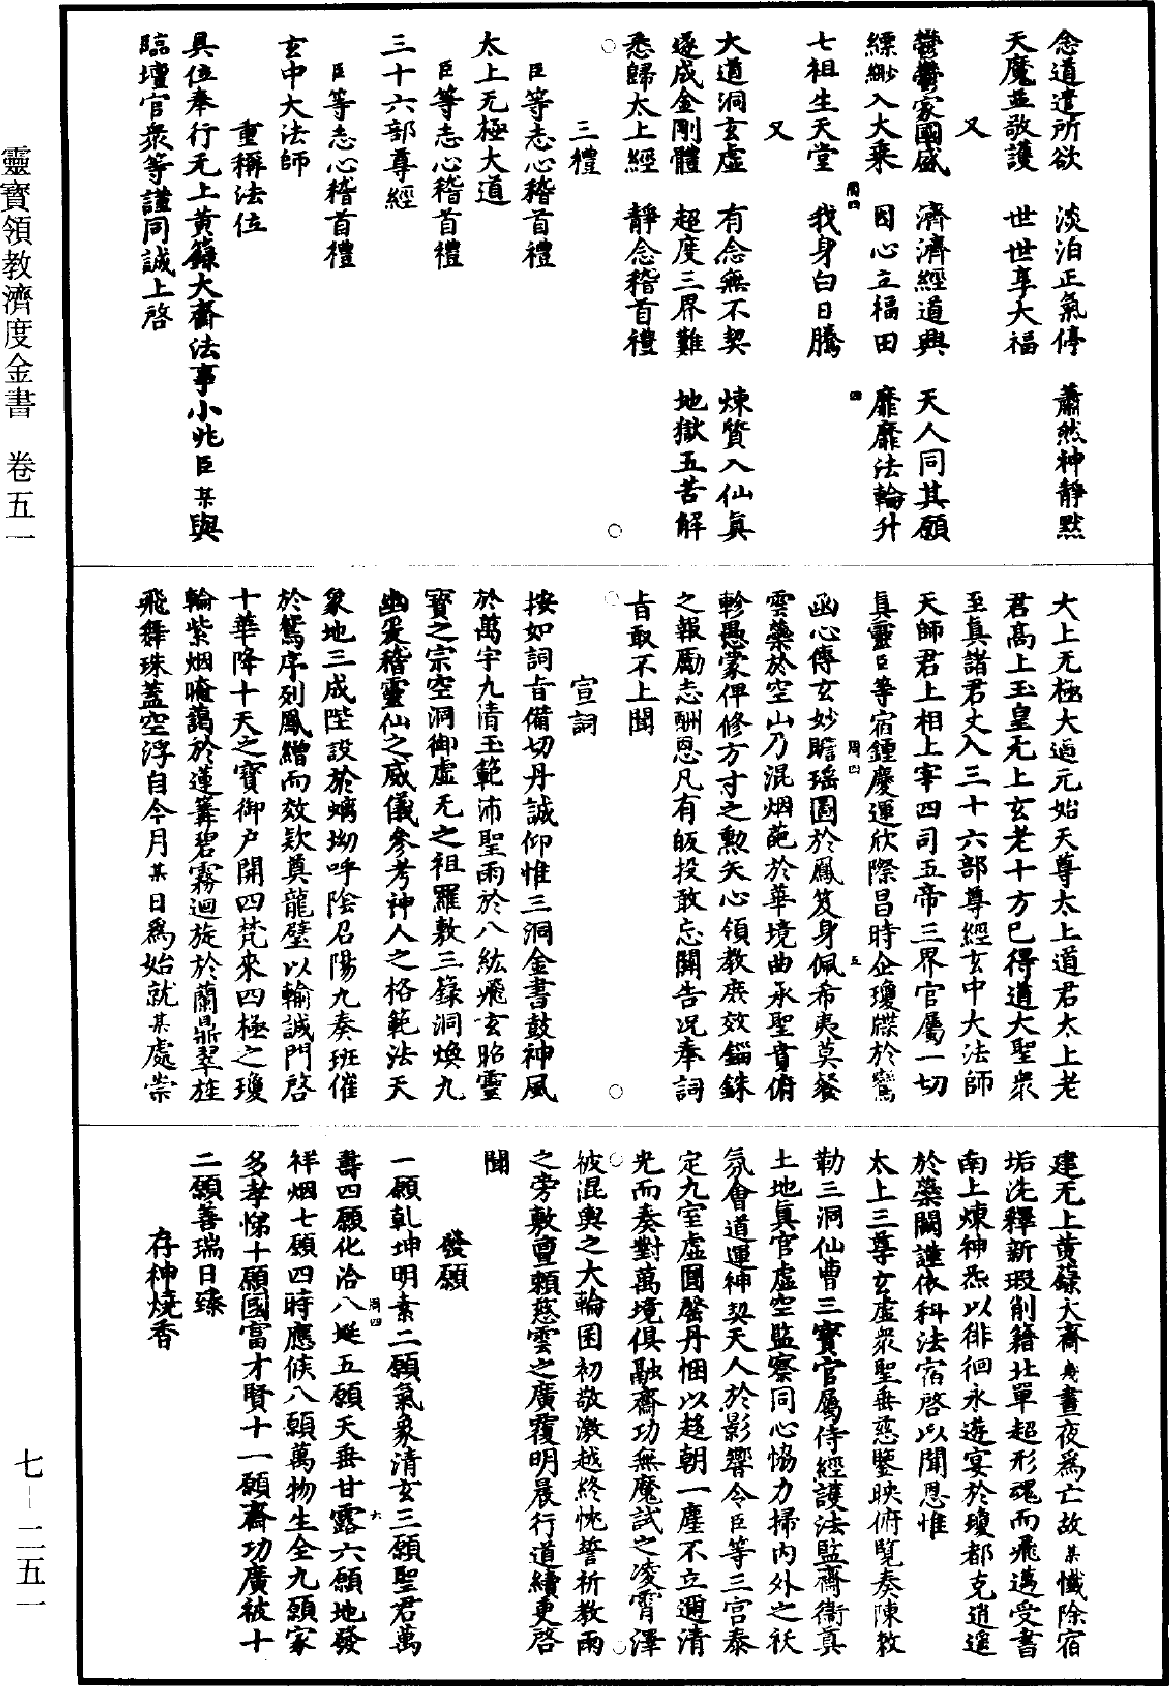 念道遣所欲　淡泊正氣停　蕭然神靜黙
天魔並敬護　世世享大福
又
鬱鬱家國盛　濟濟經道興　天人同其願
縹緲入大乘　因心立福田　靡靡法輪升
七祖生天堂　我身白日騰
又
大道洞玄虛　有念無不契　煉質入仙眞
遂成金剛體　超度三界難　地獄五苦解
悉歸太上經　靜念稽首禮
三禮
臣等志心稽首禮
太上无極大道
臣等志心稽首禮
三十六部尊經
臣等志心稽首禮
玄中大法師
重稱法位
具位奉行无上黃籙大齋法事小兆臣某與
臨壇官衆等謹同誠上啓
太上无極大道元始天尊太上道君太上老
君高上玉皇无上玄老十方已得道大聖衆
至真諸君丈人三十六部尊經玄中大法師
天師君上相上宰四司五帝三界官屬一切
真靈臣等宿鍾慶運欣際昌時企瓊牒於鸞
函心傳玄妙瞻瑤圖於鳳笈身佩希夷莫餐
雲藥於空山乃混烟葩於華境曲承聖賁俯
軫愚蒙俾修方寸之勲矢心領教廣效錙銖
之報勵志酬恩凡有皈投敢忘關告况奉詞
旨敢不上聞
宣詞
按如詞旨備切丹誠仰惟三洞金書鼓神風
於萬宇九清玉範沛聖雨於八紘飛玄昭靈
寳之宗空洞御虛无之祖羅敷三籙洞煥九
幽爰稽靈仙之威儀參考神人之格範法天
象地三成陛設於螭坳呼陰召陽九奏班催
於鴛序列鳳繒而效欵奠龍璧以輸誠門啓
十華降十天之寳御户開四梵來四極之瓊
輪紫烟晻藹於蓮篝碧霧迴旋於蘭鼎翠旌
飛舞珠蓋空浮自今月某日爲始就某處崇
建无上黃籙大齋幾晝夜爲亡故某懺除宿
垢洗釋新瑕削籍北單超形魂而飛邁受書
南上煉神炁以徘徊永遊宴於瓊都克逍遥
於蘂闕謹依科法宿啓以聞恩惟
太上三尊玄虛衆聖垂慈鑒映俯覽奏陳敕
勒三洞仙曹三寳官屬侍經護法監齋衞真
土地眞官虛空監察同心恊力掃内外之祅
氛會道運神契天人於影響令臣等三宫泰
定九室虛圓罄丹悃以趍朝一塵不立邇清
光而奏對萬境俱融齋功無魔試之凌霄澤
被混輿之大輪囷初敬激越終忱誓祈教雨
之旁敷亶頼慈雲之廣覆明晨行道續更啓
聞
發願
一願乾坤明素二願氣象清玄三願聖君萬
壽四願化洽八埏五願天垂甘露六願地發
祥烟七願四時應候八願萬物生全九願家
多孝悌十願國富才賢十一願齋功廣被十
二願善瑞日臻
存神燒香
周四
四
周四
五
周四
六
靈寳領教濟度金書　卷五一
七－二五一